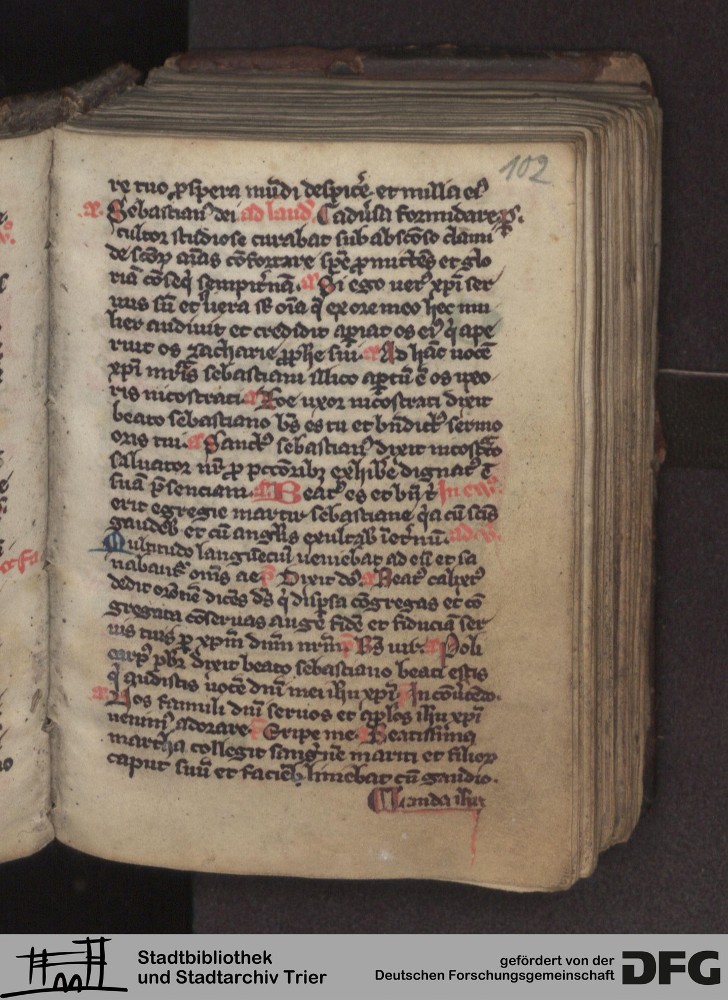 102
re tuo ꝓspera mūdi despice᷑ et nulla eiꝰ
a. Sebastianꝰ dei ad laud. aduˢsa formidare. p̄.
cultor studiose curabat sub abscōso clami
de aīas cōfortare spe ꝓmittēs et glo
riā cōseq̄ sempit᷑nā. a Si ego uerꝰ xp̄i ser
uus sū et uera st̄ oīa q̄ ex ore meo hec mu
lier audiuit et credidit apiat os eiꝰ q̄ ape
ruit os zacharie ꝓph̄e sui. a Ad hāc uocē
xp̄i mr̄is sebastiani illico aꝑtū ē os uxo
ris nicostrati. a Zoe uxor nicostrati dixit
beato sebastiano bn̄s es tu et bn̄dictꝰ sermo
oris tui. a Sanctꝰ sebastianꝰ dixit nicostrato
saluator nr̄ ꝓ pctōribꝫ exhibe᷑ dignatꝰ ē
suā p̄senciam. a Beatꝰ es et bn̄ t̄ In eu.
erit egregie martir sebastiane q̄a cū scīs
gaudebꝫ et cū angl̄is exultabꝫ ī et᷑nū. ad
Multitudo languenciū ueniebat ad eū et sa
nabant᷑ om̄s ae p̄ Dixit dn̄s. a Beatꝰ calixtꝰ
dedit orōnē dicēs ds̄ q̄ disꝑsa cōgregas et cō
gregata cōseruas auge fidē et fiduciā ser
uis tuis ꝑ xp̄m dnm̄ nr̄m p̄ Bs̄ uir. a Poli
carpꝰ pbr̄ dixit beato sebastiano beati estis
q̄ audistis uocē dn̄i mei ih̄u xp̄i. p̄ In cōuᵗedo.
a Nos famuli dn̄i seruos et apl̄os ih̄u xp̄i
uenimꝰ adorare p̄ Eripe me. a Beatissima
martha collegit sanguinē mariti et filioꝝ
caput suū et faciē liniebat cū gaudio.
Stadtbibliothek
und Stadtarchiv Trier
gefördert von der
Deutschen Forschungsgemeinschaft
DFG